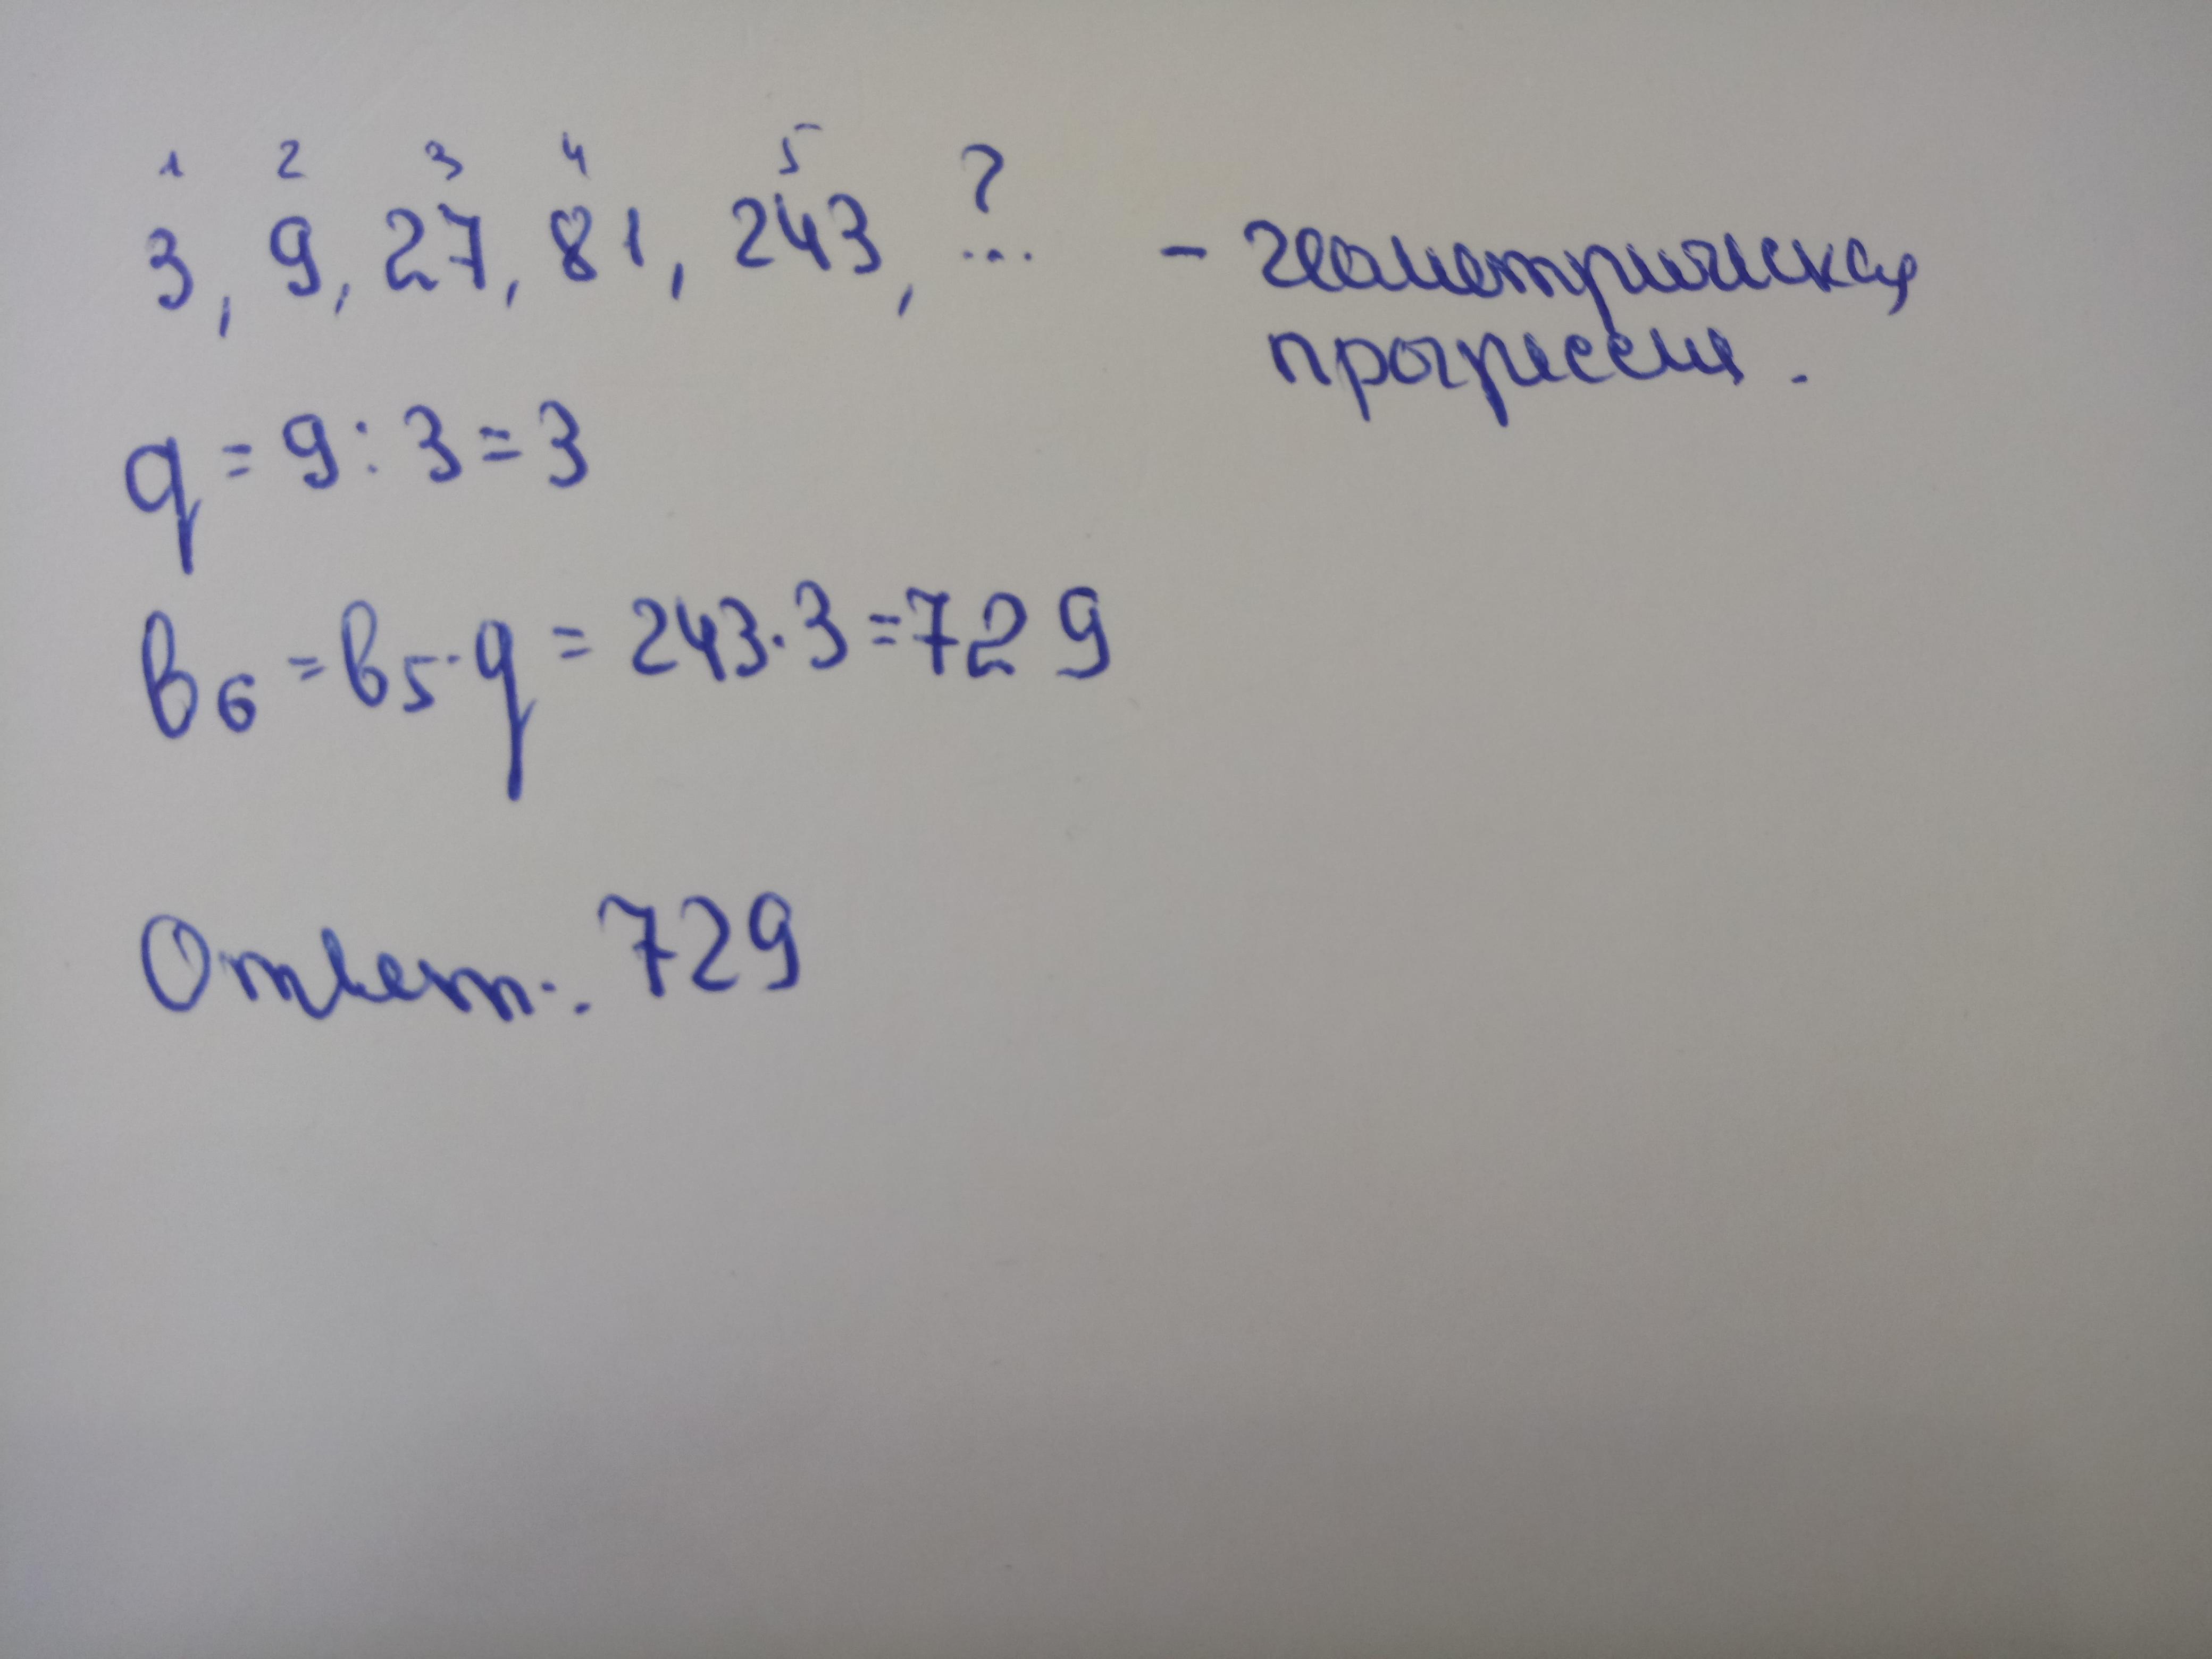 1 2 3 4 5
3, 9, 27, 81, 243, ...? - геометрическая
прогрессия.
q = 9 : 3 = 3
b₆ = b₅ · q = 243 · 3 = 729
Ответ: 729